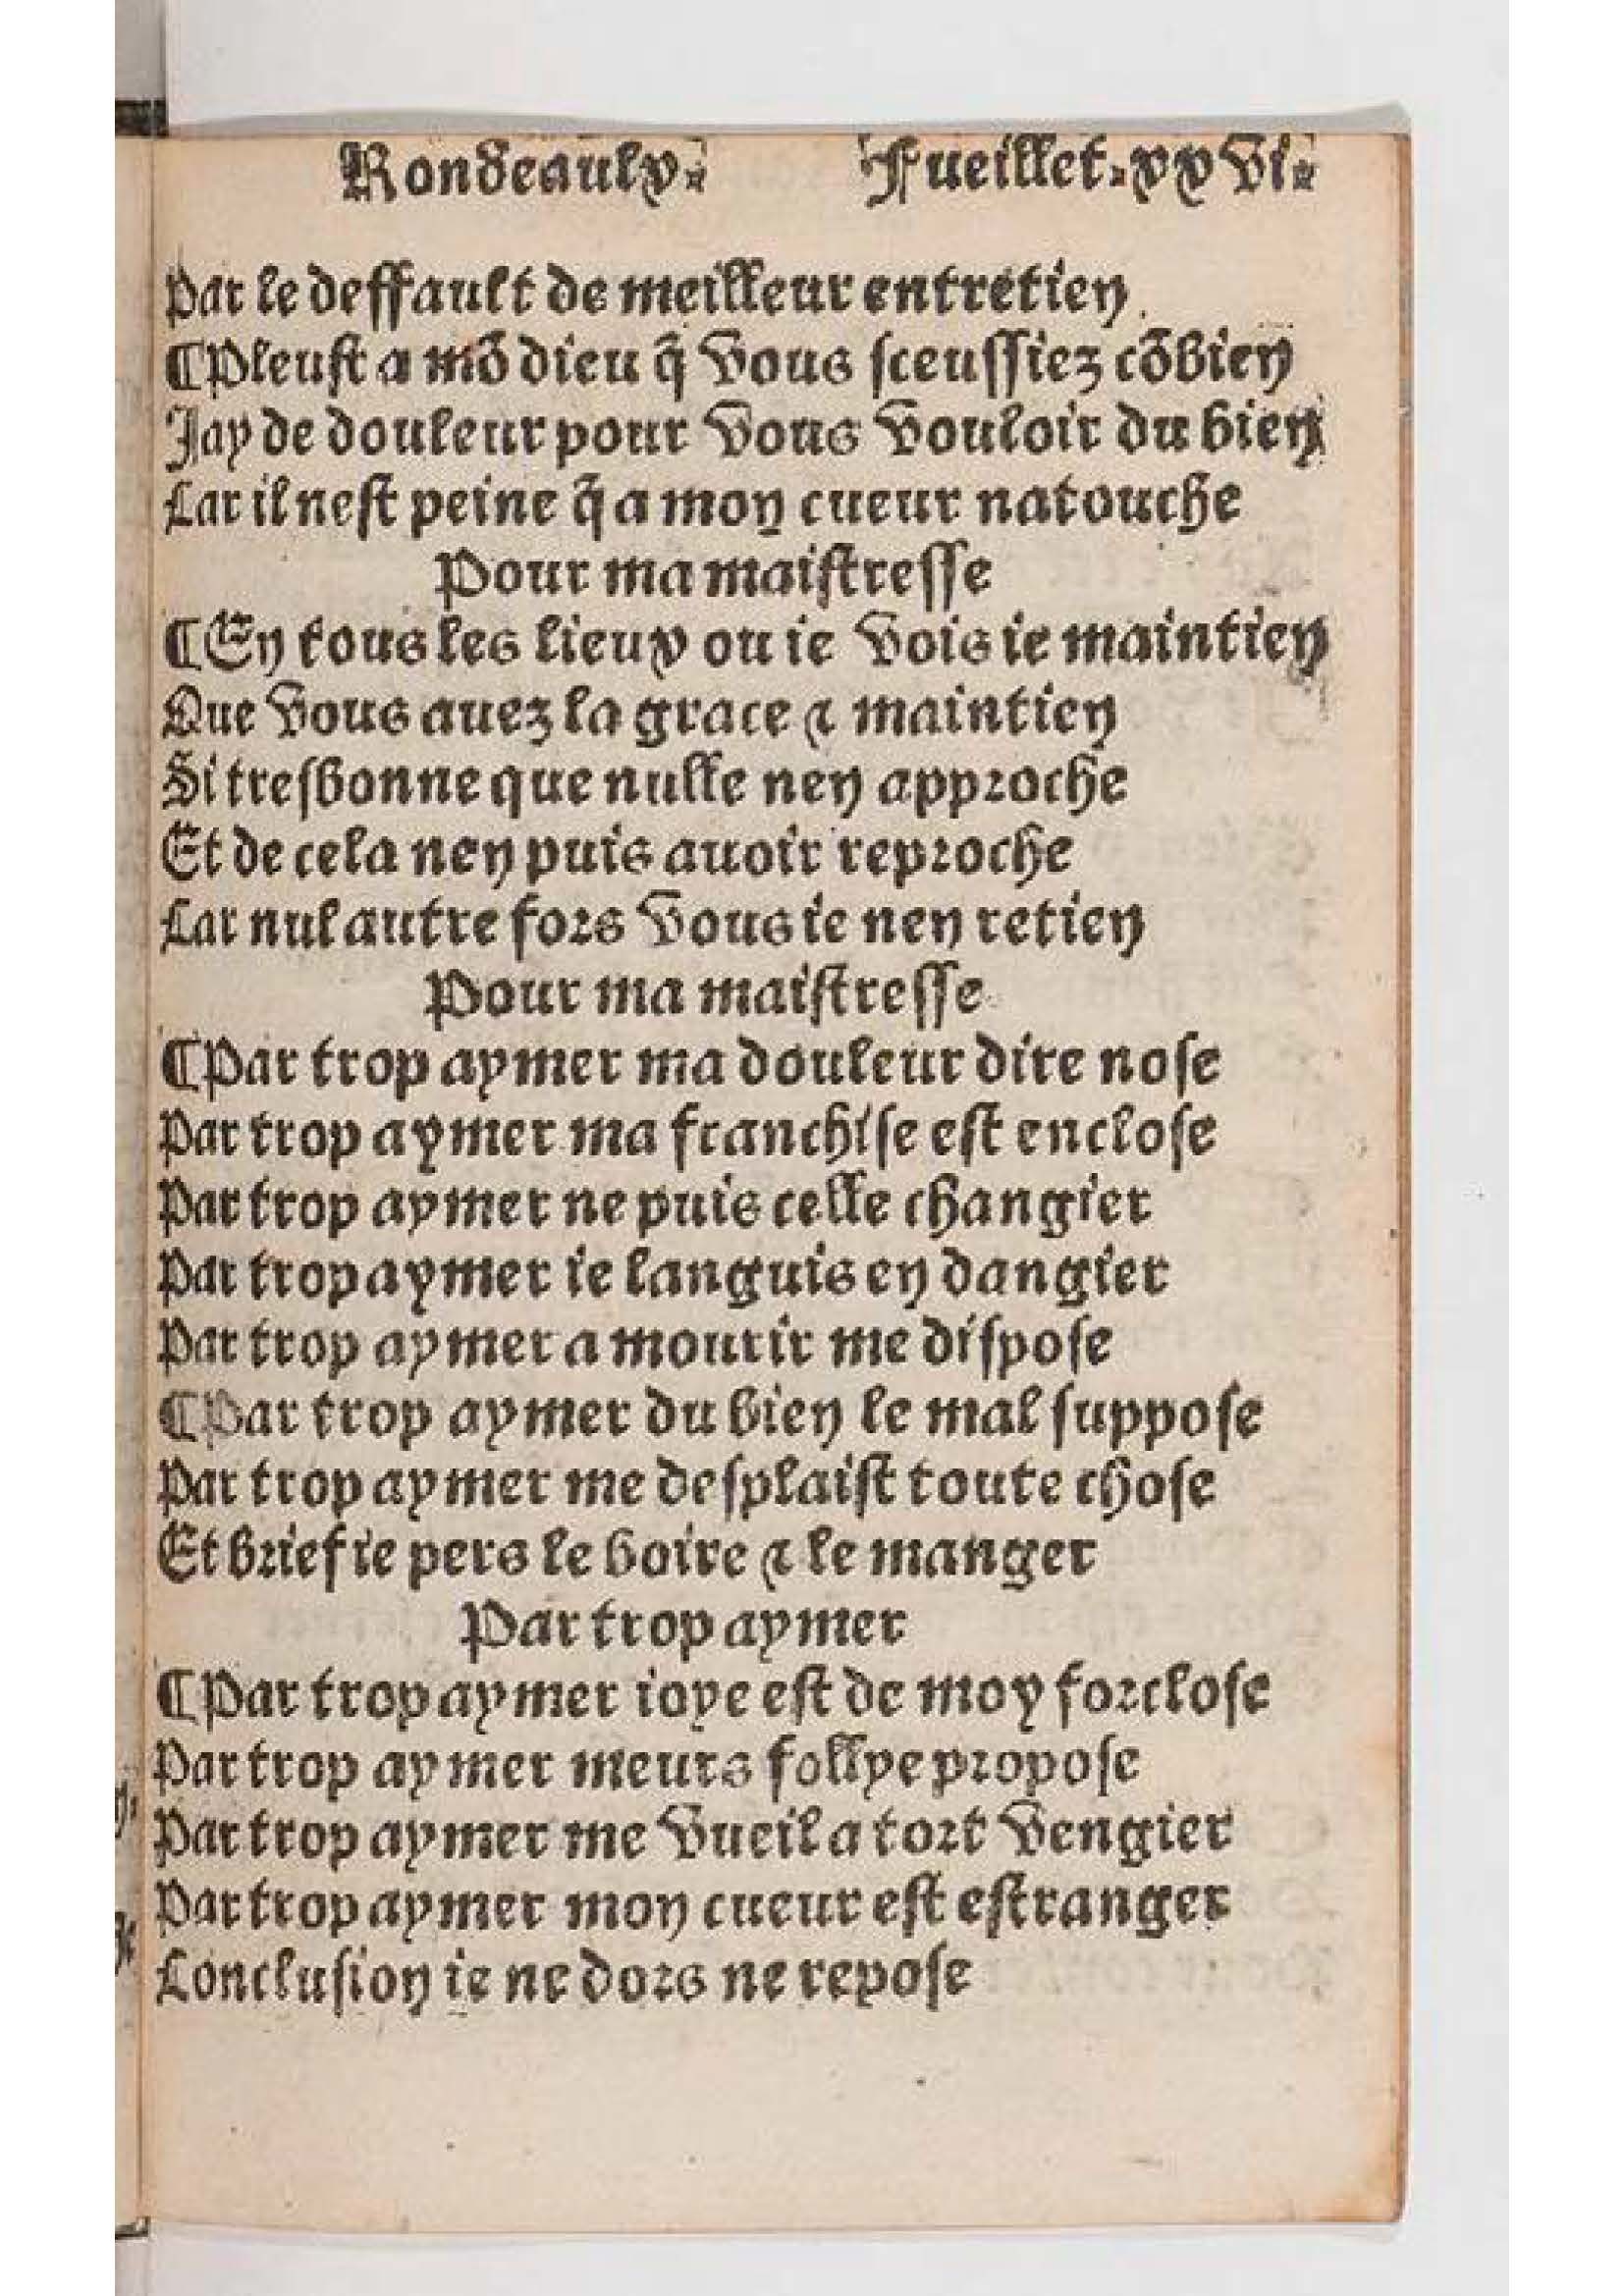 Rondeaulx. Fueillet.xxvi.
Par le deffault de meilleur entretien
¶Pleust a mõ dieu q̃ vous sceussiez cõbien
Jay de douleur pour vous vouloir du bien
Car il nest peine q̃ a mon cueur natouche
Pour ma maistresse
¶En tous les lieux ou ie vois ie maintien
Que vous auez la grace ⁊ maintien
Si tresbonne que nulle nen approche
Et de cela nen puis auoir reproche
Car nul autre fors vous ie nen retien
Pour ma maistresse
¶Par trop aymer ma douleur dire nose
Par trop aymer ma franchise est enclose
Par trop aymer ne puis celle changier
Par trop aymer ie languis en dangier
Par trop aymer a mourir me dispose
¶Par trop aymer du bien le mal suppose
Par trop aymer me desplaist toute chose
Et brief ie pers le boire ⁊ le manger
Par trop aymer
¶Par trop aymer ioye est de moy forclose
Par trop aymer meurs follye propose
Par trop aymer me vueil a tort vengier
Par trop aymer mon cueur est estranger
Conclusion ie ne dors ne repose